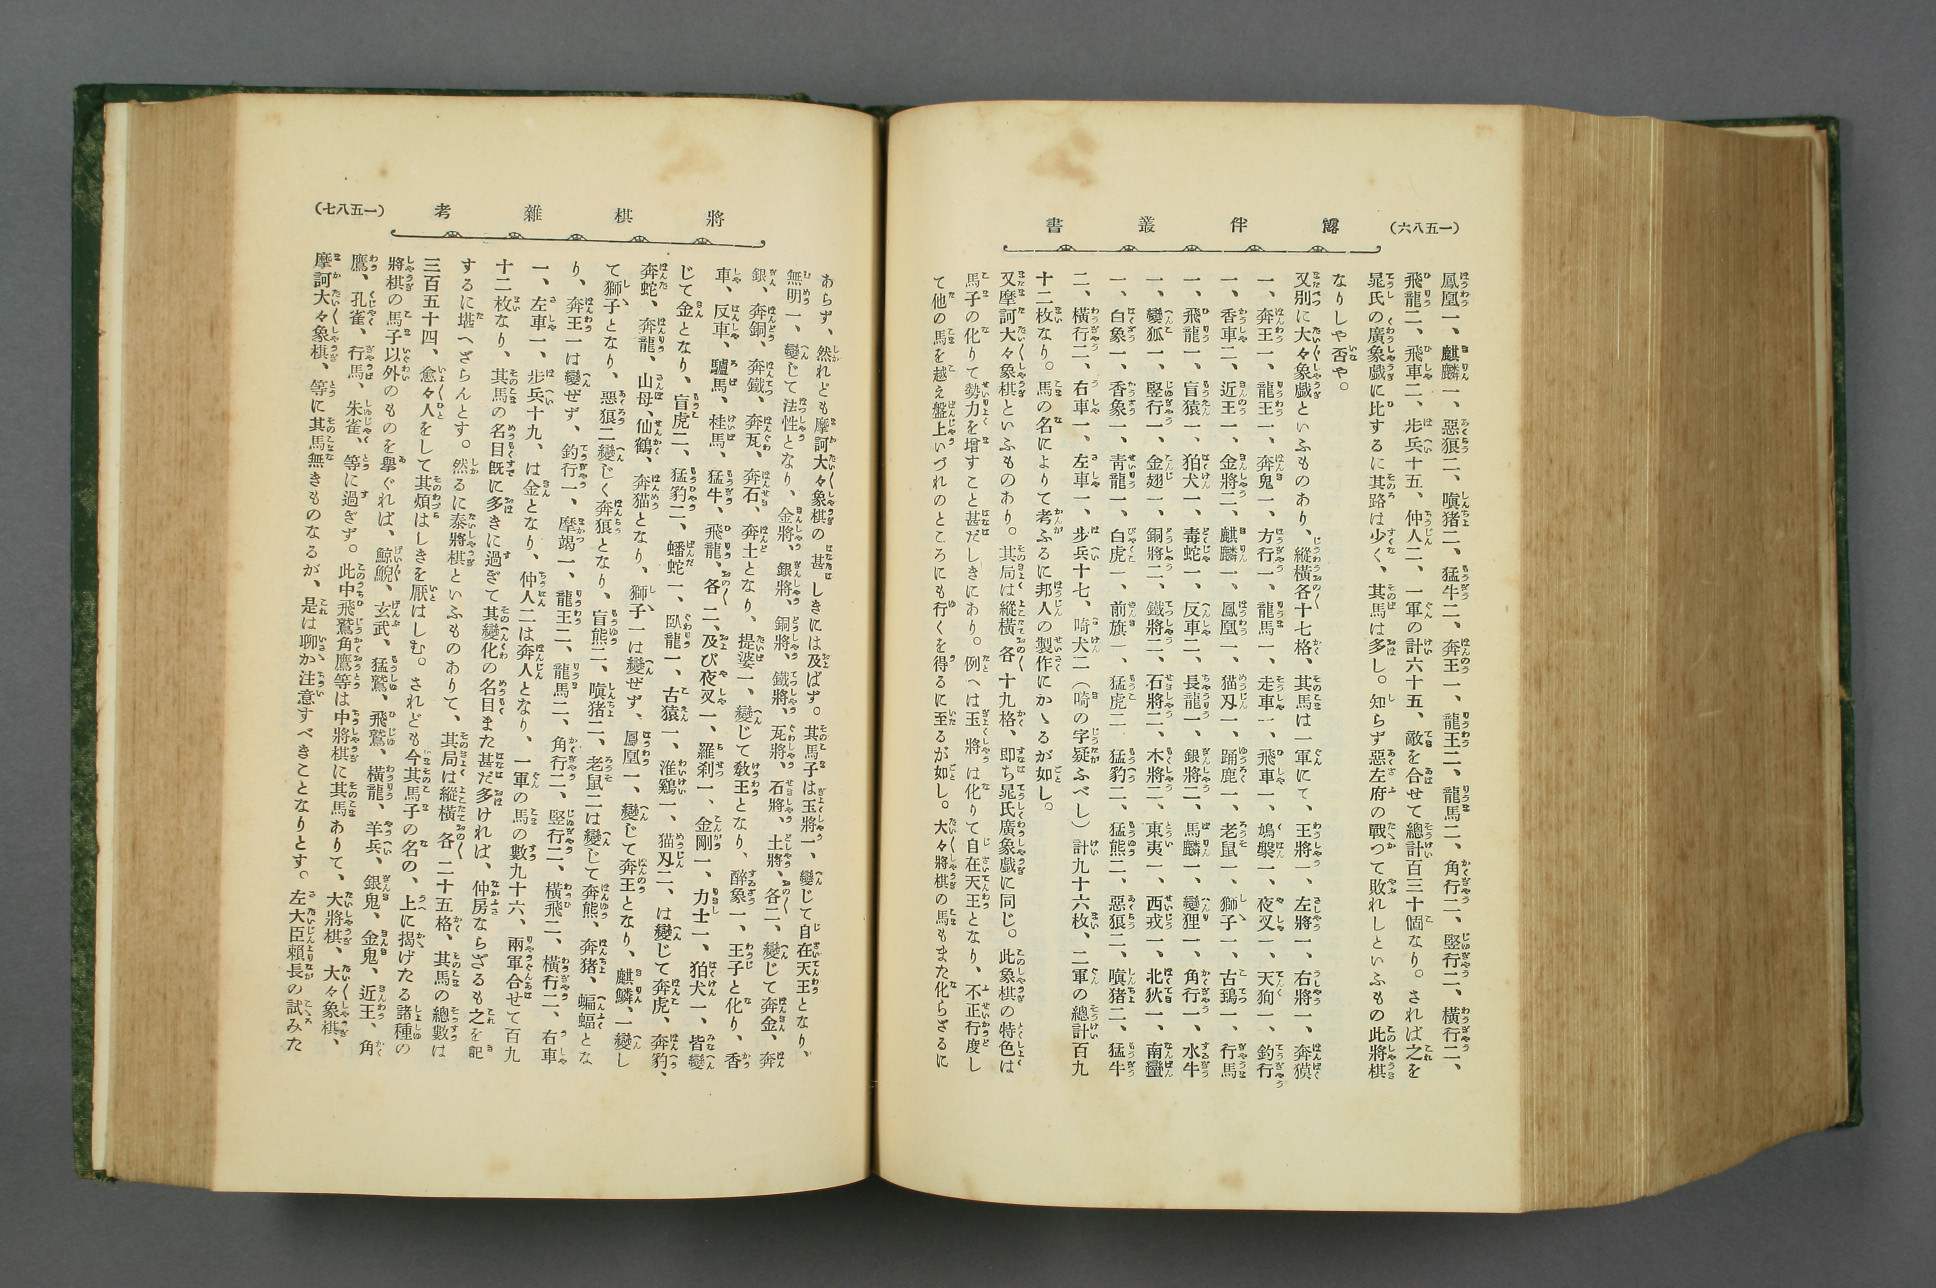 (一五八六)
露伴叢書
鳳凰一、麒麟一、惡狼二、嗔猪二、猛牛二、奔王一、龍王二、龍馬二、角行二、竪行二、横行二、
飛龍二、飛車二、步兵十五、仲人二、一軍の計六十五、敵を合せて總計百三十個なり。されば之を
晁氏の廣象戲に比するに其路は少く、其馬は多し。知らず惡左府の戰つて敗れしといふもの此將棋
なりしや否や。
又別に大々象戲といふものあり、縱橫各十七格、其馬は一軍にて、王將一、左將一、右將一、奔獏
一、奔王一、龍王一、奔鬼一、方行一、龍馬一、走車一、飛車一、鳩槃一、夜叉一、天狗一、釣行
一、香車二、近王一、金將二、麒麟一、鳳凰一、猫刄一、踊鹿一、老鼠一、獅子一、古鵄一、行馬
一、飛龍一、盲猿一、狛犬一、毒蛇一、反車二、長龍一、銀將二、馬麟一、變狸一、角行一、水牛
一、變狐一、竪行一、金翅一、銅將二、鐵將二、石將二、木將二、東夷一、西戎一、北狄一、南蠻
一、白象一、香象一、靑龍一、白虎一、前旗一、猛虎二、猛豹二、猛熊二、惡狼二、嗔猪二、猛牛
二、橫行二、右車一、左車一、步兵十七、㖞犬二(㖞の字疑ふべし)計九十六枚、二軍の總計百九
十二枚なり。馬の名によりて考ふるに邦人の製作にかゝるが如し。
又摩訶大々象棋といふものあり。其局は縱橫各十九格、卽ち晁氏廣象戲に同じ。此象棋の特色は
馬子の化りて勢力を增すこと甚だしきにあり。例へは玉將は化りて自在天王となり、不正行度し
て他の馬を越え盤上いづれのところにも行くを得るに至るが如し。大々將棋の馬もまた化らざるに
(一五八七)
將棋雜考
あらず、然れども摩訶大々象棋の甚しきには及ばず。其馬子は玉將一、變じて自在天王となり、
無明一、變じて法性となり、金將、銀將、銅將、鐵將、瓦將、石將、土將、各二、變じて奔金、奔
銀、奔銅、奔鐵、奔瓦、奔石、奔土となり、提婆一、變じて敎王となり、醉象一、王子と化り、香
車、反車、驢馬、桂馬、猛牛、飛龍、各二、及び夜叉一、羅刹一、金剛一、力士一、狛犬一、皆變
じて金となり、盲虎二、猛豹二、蟠蛇一、臥龍一、古猿一、淮鷄一、猫刄二、は變じて奔虎、奔豹、
奔蛇、奔龍、山母、仙鶴、奔猫となり、獅子一は變ぜず、鳳凰一、變じて奔王となり、麒麟、一變し
て獅子となり、惡狼二變じく奔狼となり、盲熊二、嗔猪二、老鼠二は變じて奔熊、奔猪、蝙蝠とな
り、奔王一は變ぜず、釣行一、摩竭一、龍王二、龍馬二、角行二、竪行二、橫飛二、橫行二、右車
一、左車一、步兵十九、は金となり、仲人二は奔人となり、一軍の馬の數九十六、兩軍合せて百九
十二枚なり、其馬の名目旣に多きに過ぎて其變化の名目また甚だ多ければ、仲房ならざるも之を記
するに堪へざらんとす。然るに泰將棋といふものありて、其局は縱橫各二十五格、其馬の總數は
三百五十四、愈々人をして其煩はしきを厭はしむ。されども今其馬子の名の、上に揭げたる諸種の
將棋の馬子以外のものを擧ぐれば、鯨鯢、玄武、猛鷲、飛鷲、橫龍、羊兵、銀鬼、金鬼、近王、角
鷹、孔雀、行馬、朱雀、等に過ぎず。此中飛鷲角鷹等は中將棋に其馬ありて、大將棋、大々象棋、
摩訶大々象棋、等に其馬無きものなるが、是は聊か注意すべきことなりとす。左大臣賴長の試みた